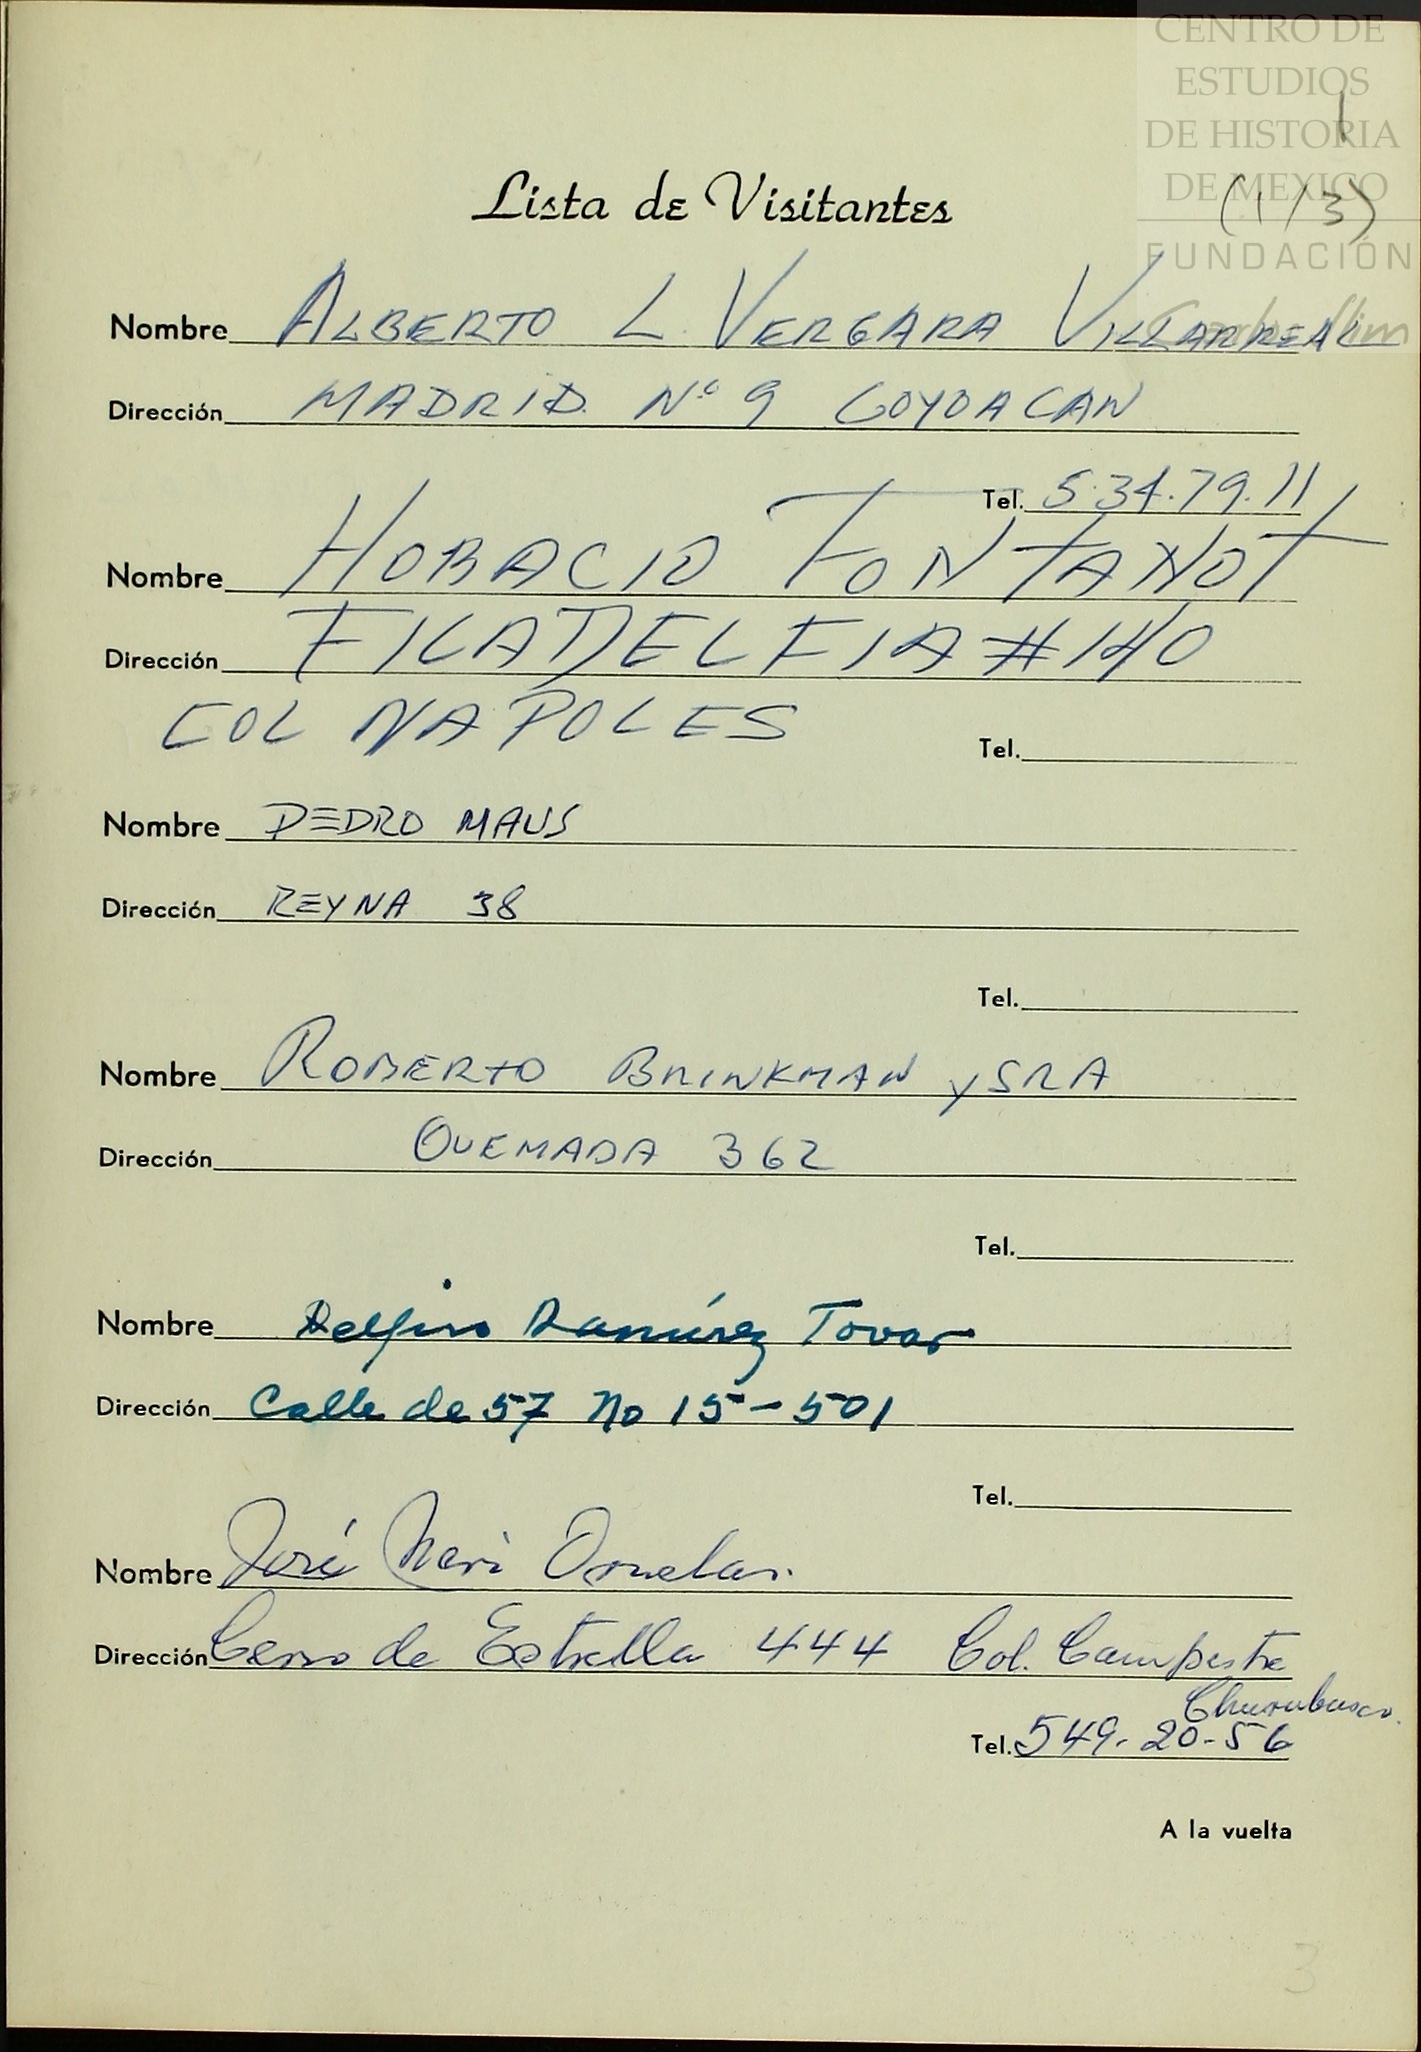 CENTRO DE
ESTUDIOS
DE HISTORIA
DE MEXICO
FUNDACIÓN
Carlos Slim
1
(1/3)
Lista de Visitantes
Nombre ALBERTO L. VERGARA VILLARREAL
Dirección MADRID Nº 9 COYOACAN
Tel. 5.34.79.11
Nombre HORACIO FONTANOT
Dirección FILADELFIA #140
COL NAPOLES
Tel.
Nombre PEDRO MAUS
Dirección REYNA 38
Tel.
Nombre ROBERTO BRINKMAN Y SRA
Dirección QUEMADA 362
Tel.
Nombre Delfino Ramírez Tovar
Dirección Calle de 57 No 15-501
Tel.
Nombre José Neri Ornelas.
Dirección Cerro de Estrella 444 Col. Campestre
Churubusco.
Tel. 549-20-56
A la vuelta
3